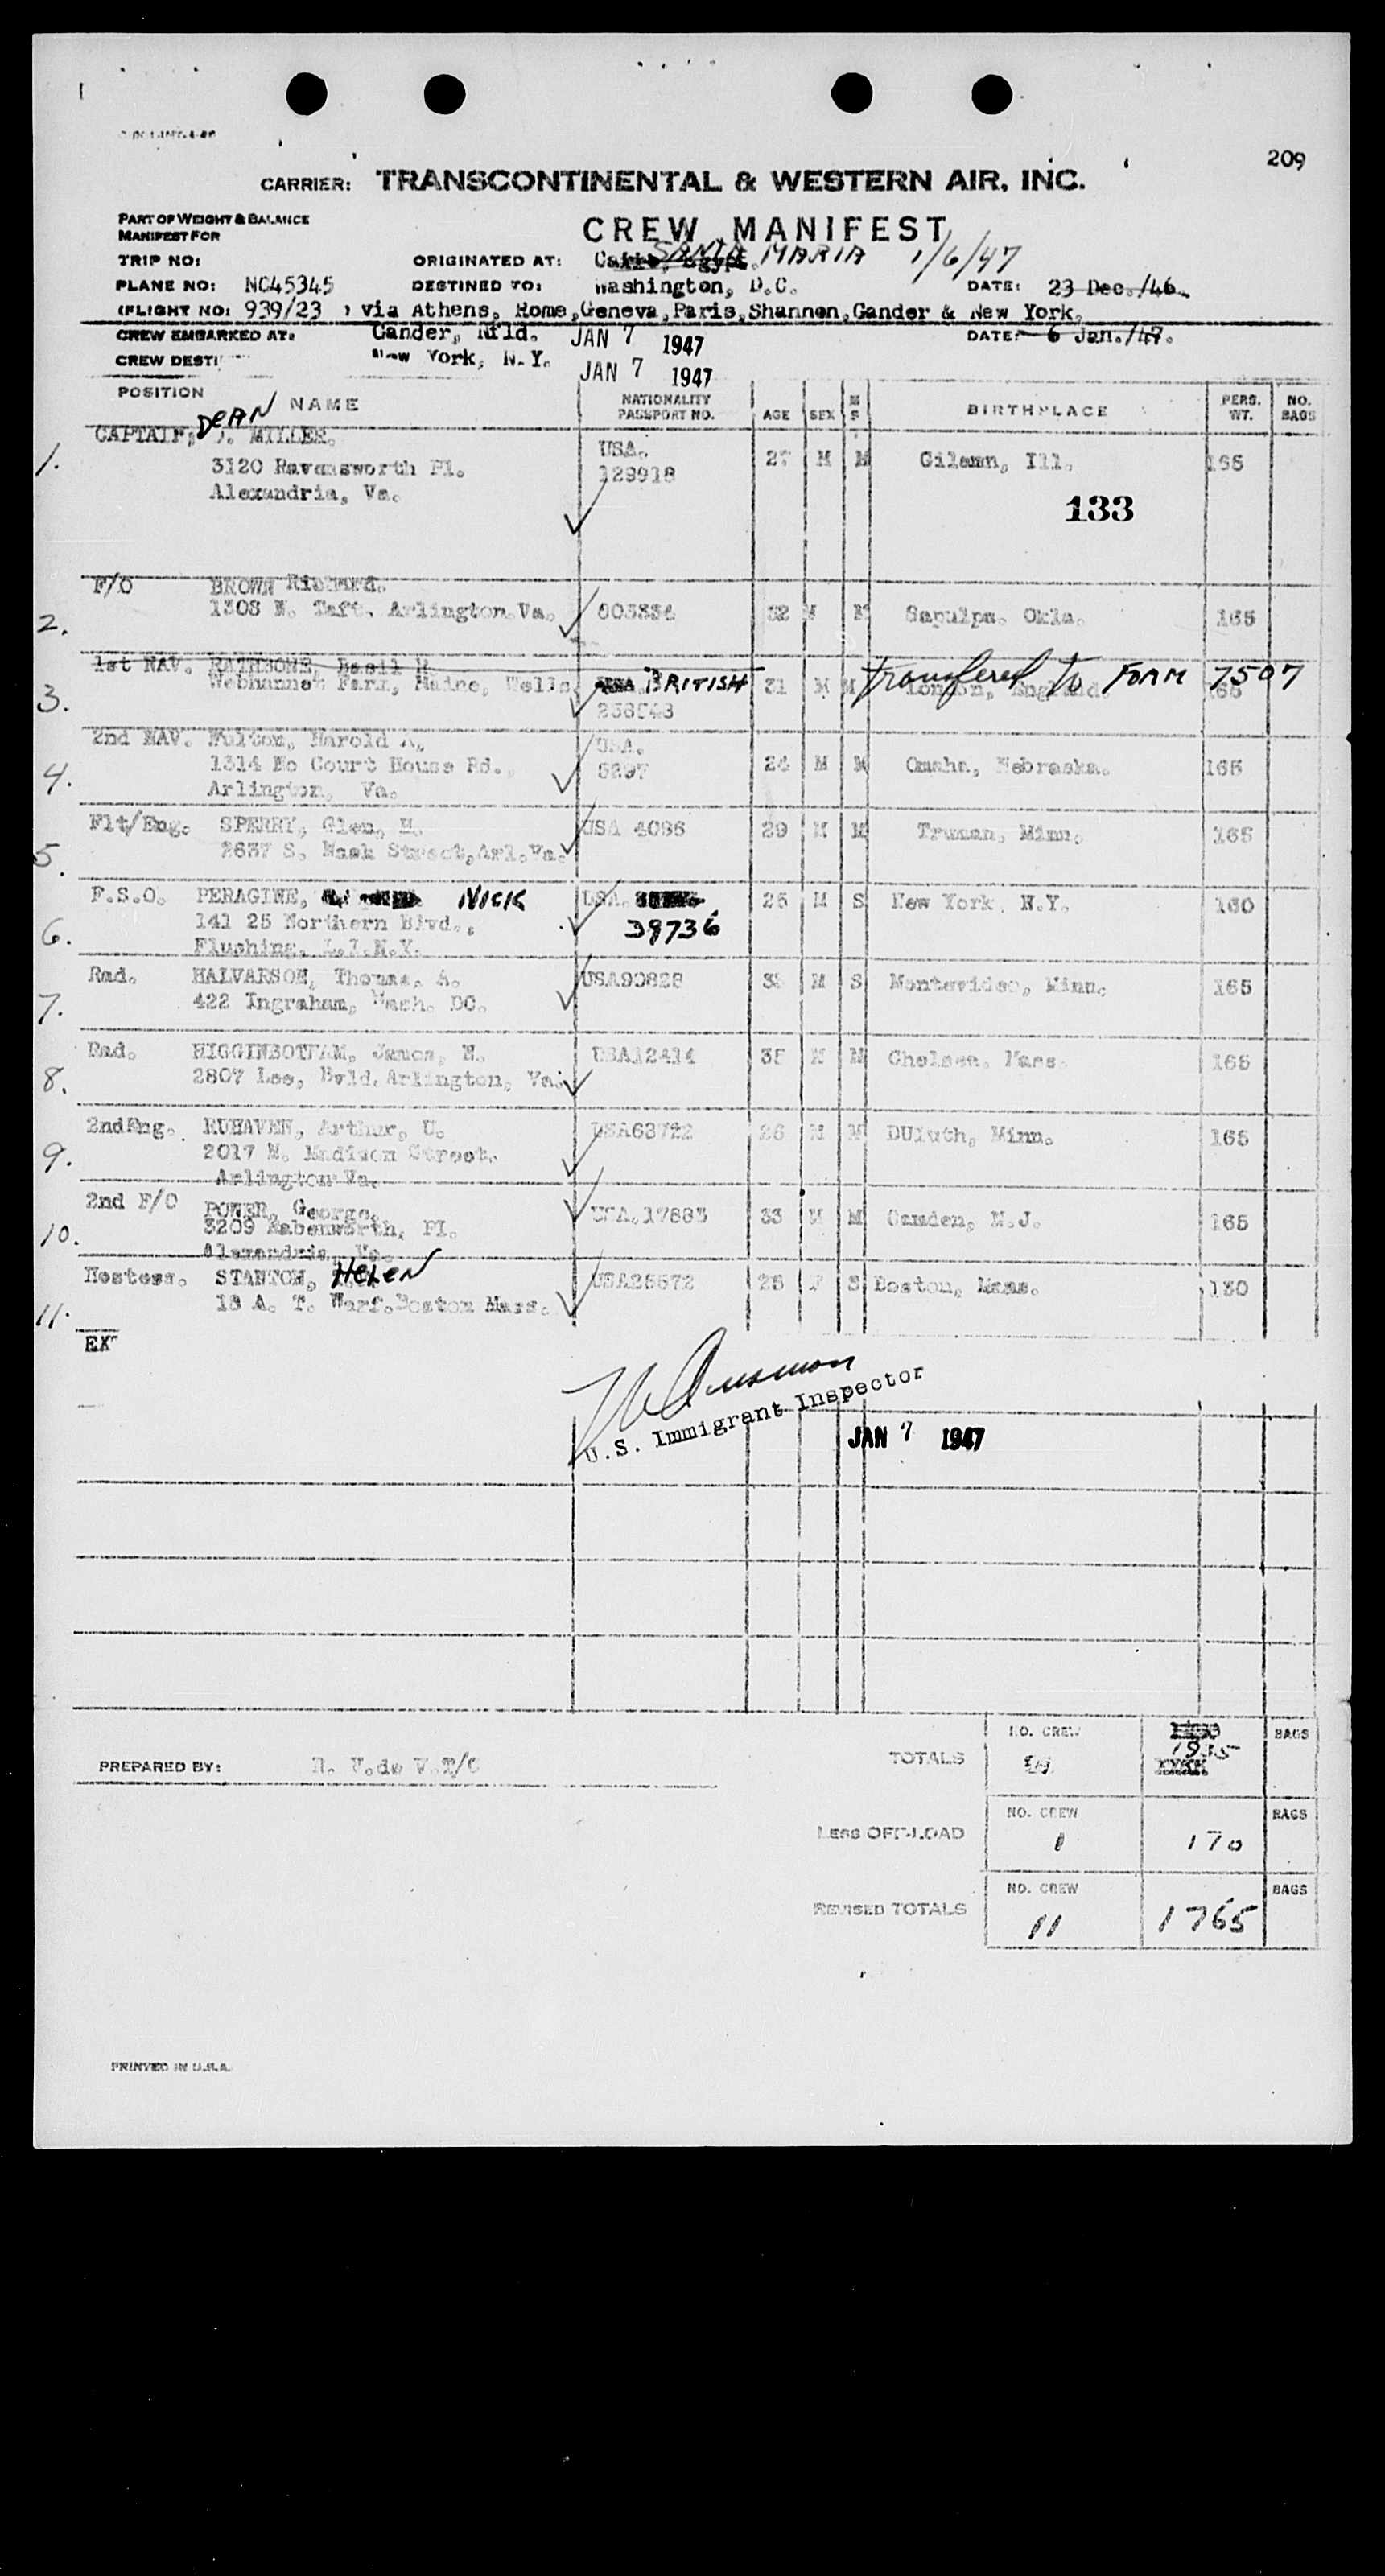 209
CARRIER: TRANSCONTINENTAL & WESTERN AIR, INC.
PART OF WEIGHT & BALANCE
MANIFEST FOR
CREW MANIFEST
TRIP NO:
ORIGINATED AT: Cairo, Egypt. SANTA MARIA 1/6/47
PLANE NO: NC45345 DESTINED TO: Washington, D.C. DATE: 23 Dec./46.
(FLIGHT NO: 939/23 ) via Athens, Rome,Geneva,Paris,Shannon,Gander & New York.
CREW EMBARKED AT: Gander, Nfld. JAN 7 1947 DATE: 6 Jan./47.
CREW DEST: New York, N.Y. JAN 7 1947
POSITION NAME NATIONALITY PASSPORT NO. AGE SEX M S BIRTHPLACE PERS. WT. NO. BAGS
1. CAPTAIN, DEAN J. MILLER. USA. 27 M M Gilman, Ill. 165
3120 Ravensworth Pl. 129918
Alexandria, Va.
133
F/O BROWN Richard.
2. 1308 N. Taft. Arlington.Va. 32 M Sapulpa. Okla. 165
1st NAV. RATHBONE, Basil R transfered to FORM 7507
3. Webhannet Farm, Maine, Wells. BRITISH 31 M M London, England. 165
2nd NAV. Fulton, Harold A, USA.
4. 1314 No Court House Rd., 5297 24 M M Omaha, Nebraska. 165
Arlington, Va.
Flt/Eng. SPERRY, Glen, M. USA 4086 29 M M Truman, Minn. 165
5. 2637 S. Nash Street,Arl.Va.
F.S.O. PERAGINE, NICK USA. 25 M S New York. N.Y. 130
6. 141 25 Northern Blvd., 39736
Flushing, L.I.N.Y.
Rad. HALVARSON, Thomas, A. USA90828 M S Montevideo, Minn. 165
7. 422 Ingraham, Wash. DC.
Rad. HIGGINBOTHAM, James, N. USA12414 35 M M Chelsea, Mass. 165
8. 2807 Lee, Bvld. Arlington, Va.
2ndEng. RUHAVEN, Arthur, U. USA63722 26 M M DUluth, Minn. 165
9. 2017 N. Madison Street.
Arlington Va.
2nd F/O POWER, George. USA.17883 33 M M Camden, N.J. 165
10. 3209 Rabenworth, Pl.
Alexandria. Va.
Hostess. STANTON, HELEN USA25572 25 F S Boston, Mass. 130
11. 18 A. T. Warf.Boston Mass.
EX
U.S. Immigrant Inspector
JAN 7 1947
PREPARED BY: R. V.de V.T/C
TOTALS NO. CREW 1935 BAGS
LESS OFF-LOAD NO. CREW 1 170 BAGS
REVISED TOTALS NO. CREW 11 1765 BAGS
PRINTED IN U.S.A.